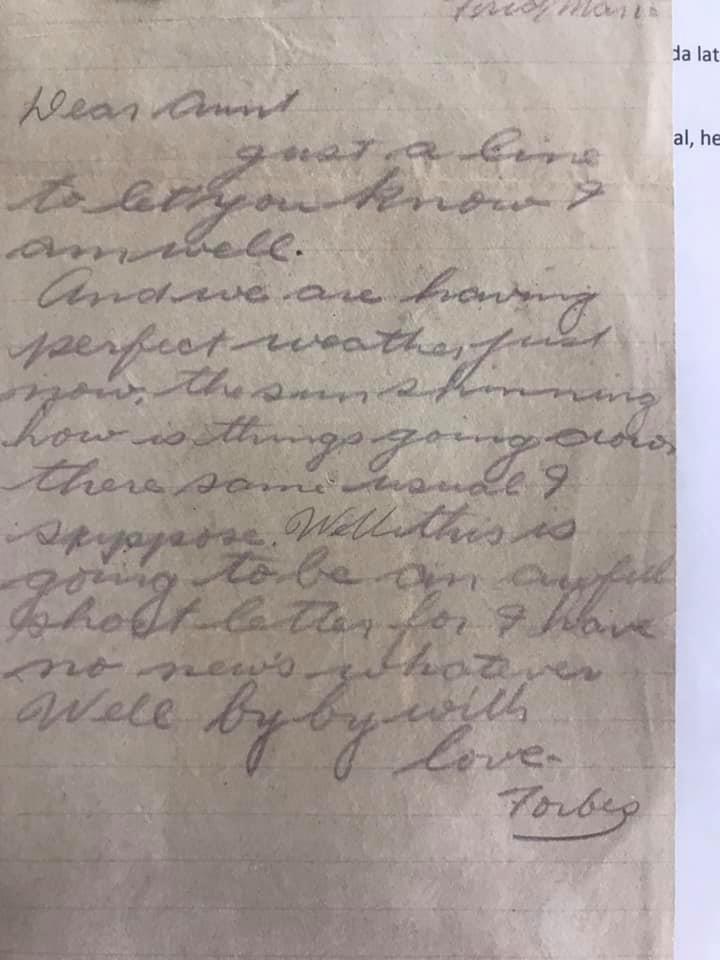 da lat
al, he
Dear Aunt
just a line
to let you know I
am well.
And we are having
perfect weather just
now, the sun shinning
how is things going down
there same usual I
suppose. Well this is
going to be an awful
short letter for I have
no news whatever
Well by by with
love-
Forbes